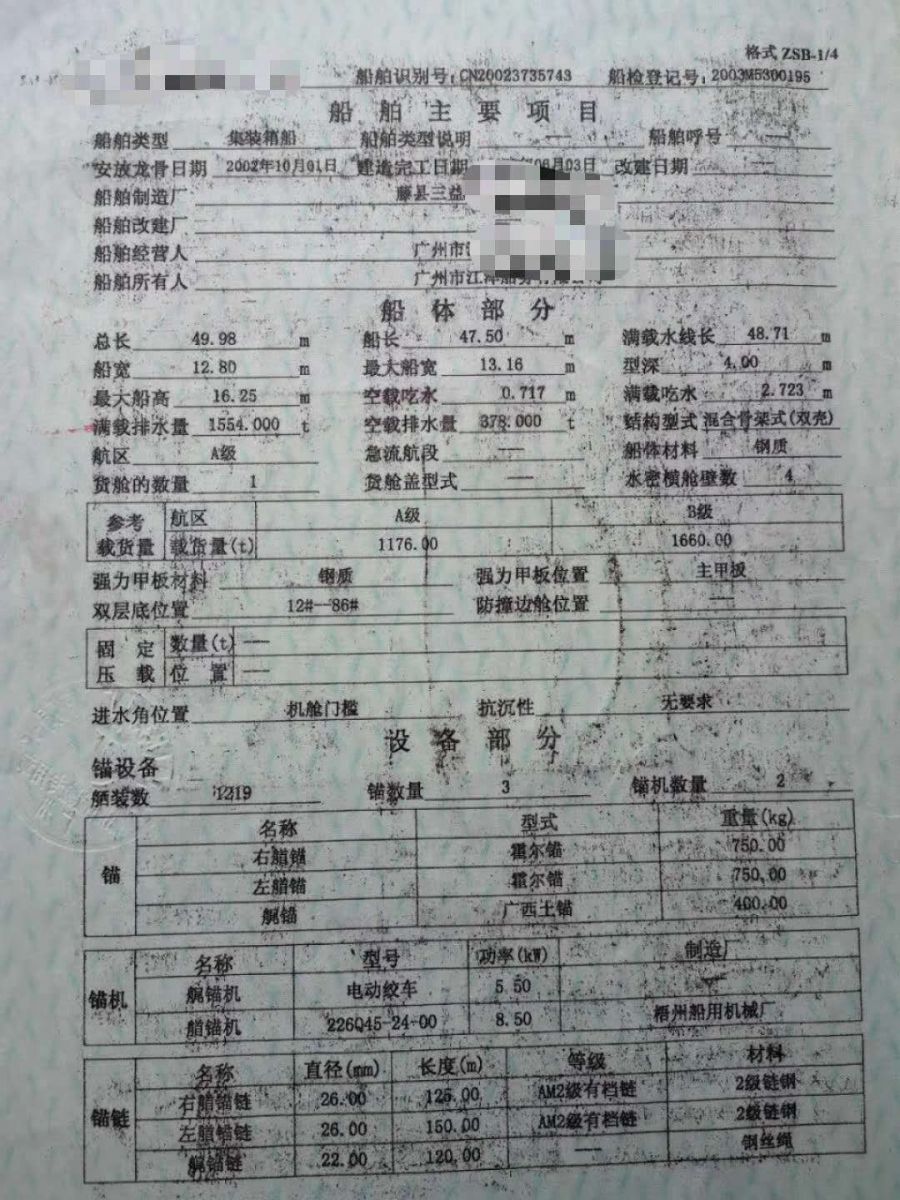 格式 ZSB-1/4
船舶识别号:CN20023735743 船检登记号:2003M5300195
船舶主要项目
船舶类型 集装箱船 船舶类型说明 —— 船舶呼号 ——
安放龙骨日期 2002年10月01日 建造完工日期 月03日 改建日期 ——
船舶制造厂 藤县三益
船舶改建厂
船舶经营人 广州市
船舶所有人 广州市江
船体部分
总长 49.98 m 船长 47.50 m 满载水线长 48.71 m
船宽 12.80 m 最大船宽 13.16 m 型深 4.00 m
最大船高 16.25 m 空载吃水 0.717 m 满载吃水 2.723 m
满载排水量 1554.000 t 空载排水量 378.000 t 结构型式 混合骨架式(双壳)
航区 A级 急流航段 —— 船体材料 钢质
货舱的数量 1 货舱盖型式 —— 水密横舱壁数 4
参考载货量 航区 A级 B级
载货量(t) 1176.00 1660.00
强力甲板材料 钢质 强力甲板位置 主甲板
双层底位置 12#--86# 防撞边舱位置 ——
固定压载 数量(t) ——
位置 ——
进水角位置 机舱门槛 抗沉性 无要求
设备部分
锚设备
舾装数 1219 锚数量 3 锚机数量 2
锚 名称 型式 重量(kg)
右艏锚 霍尔锚 750.00
左艏锚 霍尔锚 750.00
艉锚 广西土锚 400.00
锚机 名称 型号 功率(kW) 制造厂
艉锚机 电动绞车 5.50 ——
艏锚机 226Q45-24-00 8.50 梧州船用机械厂
锚链 名称 直径(mm) 长度(m) 等级 材料
右艏锚链 26.00 125.00 AM2级有档链 2级链钢
左艏锚链 26.00 150.00 AM2级有档链 2级链钢
艉锚链 22.00 120.00 —— 钢丝绳